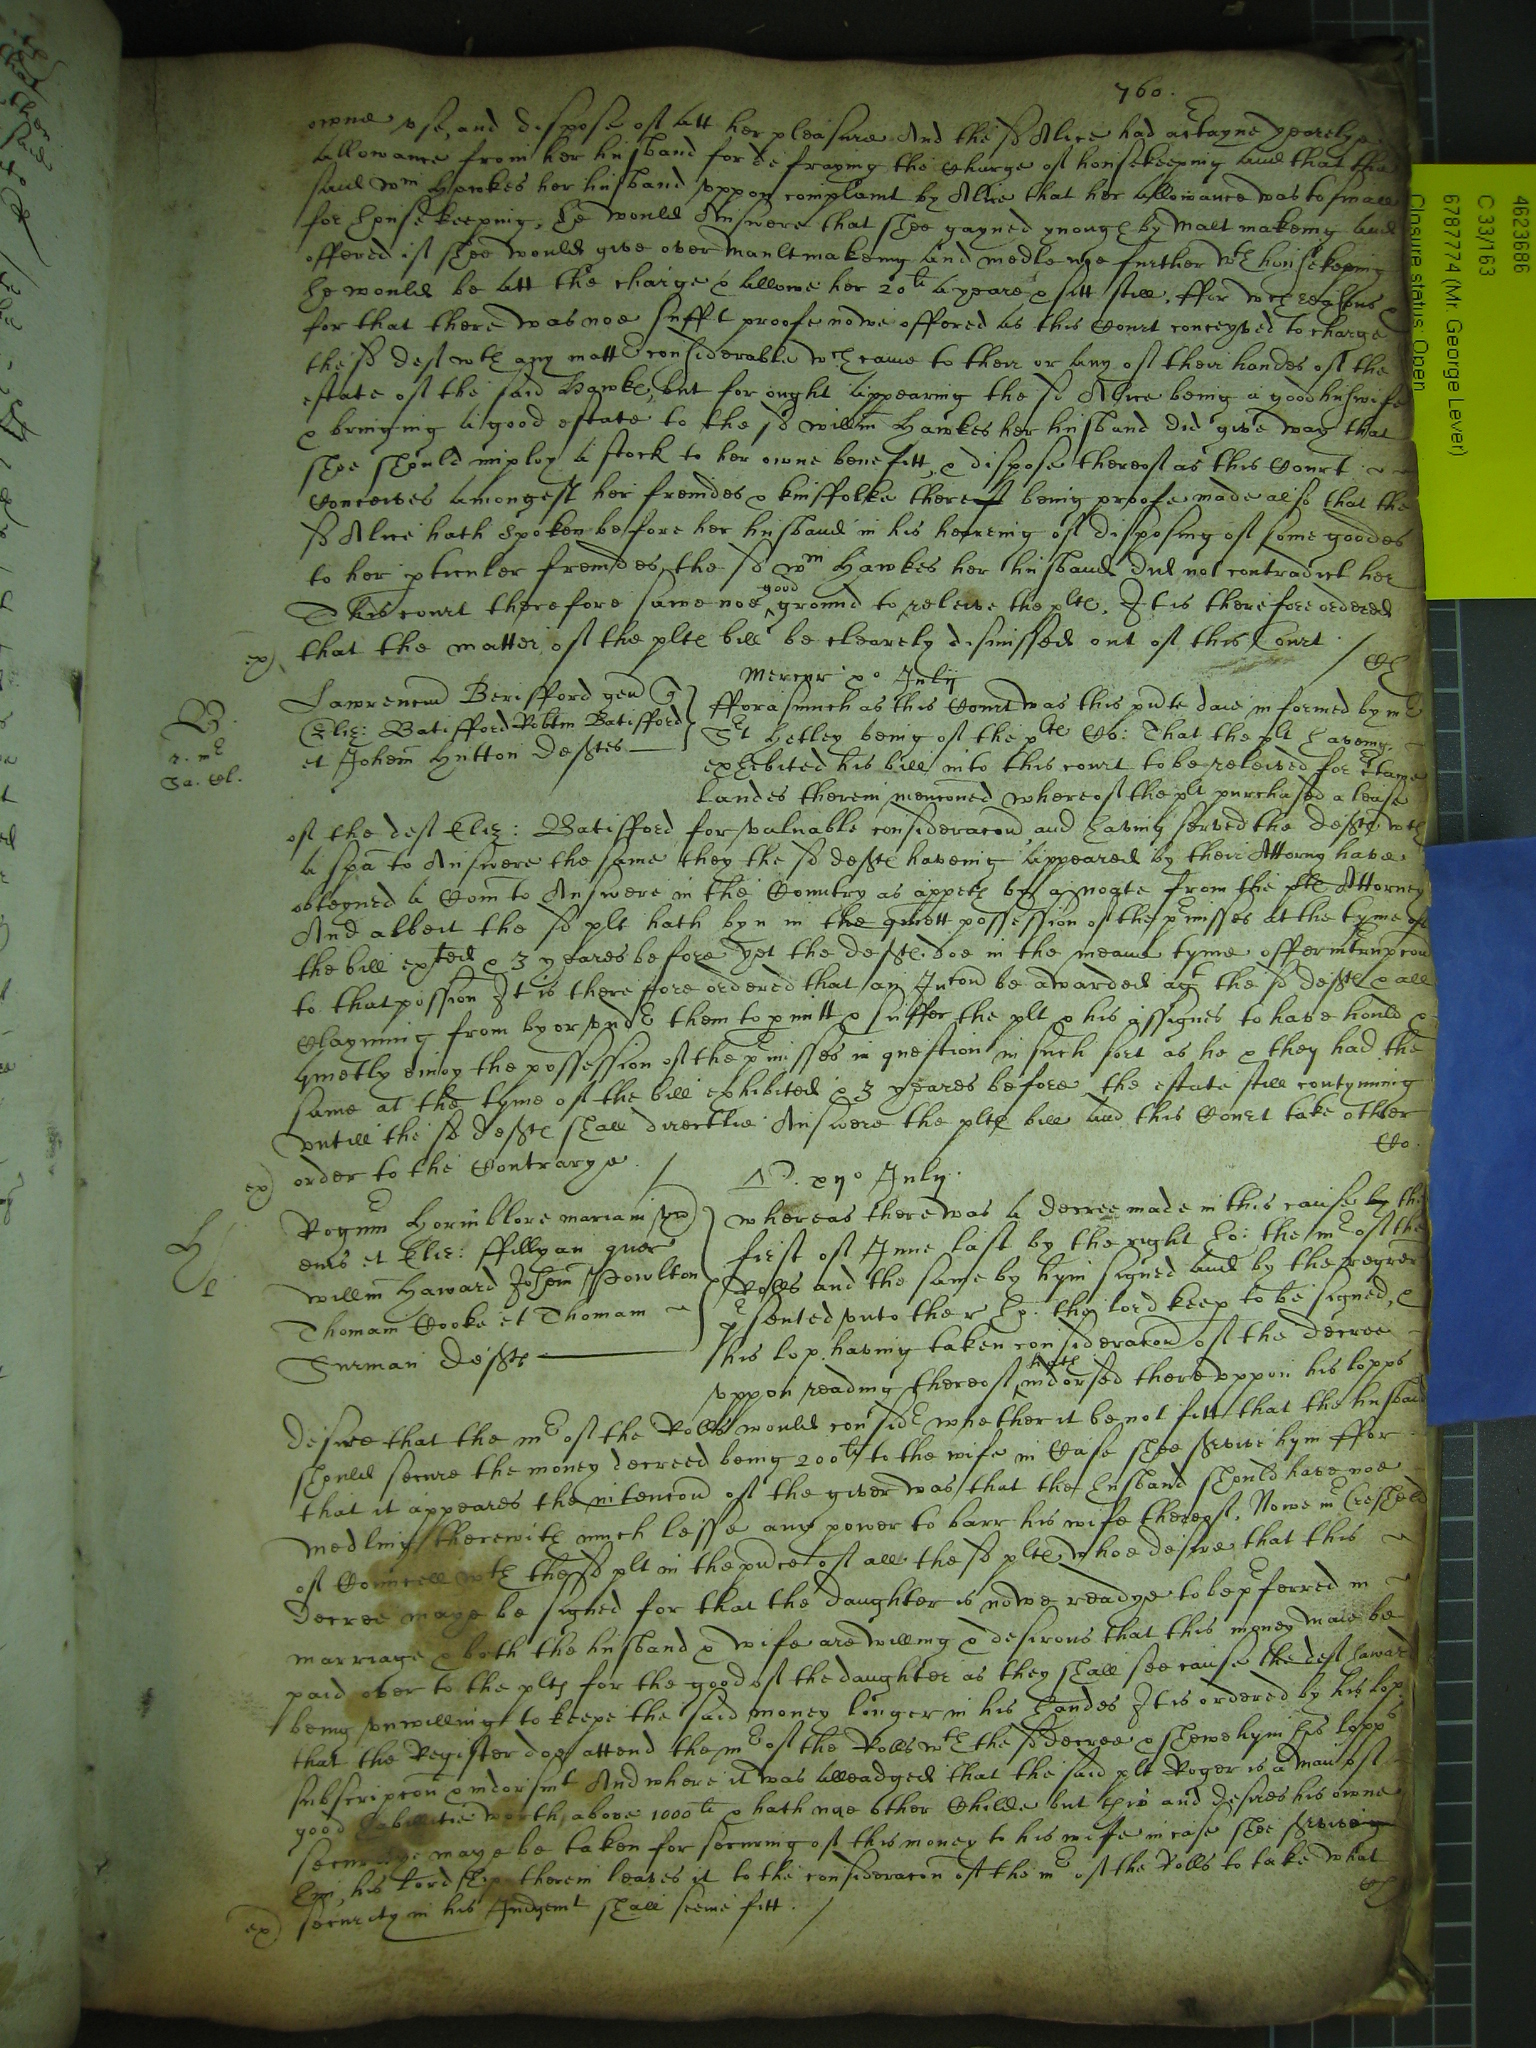 760.
owne vse, and dispose of att her pleasure And the sd Alice had a certayne yearely
allowance from her husband for defraying the Charge of housekeeping and that the
said Wm Hawkes her husband vppon complaint by Alice that her allowance was to small
for housekeeping, he would Answere that shee gayned ynough by Malt makeing and
offered if shee would give over maultmakeing and medle noe further wth housekeeping
he would be att the charge & allowe her 20li a yeare & sitt still, ffor wch reasons &
for that there was noe sufft proofe nowe offered as this Court conceyved to charge
the sd deft wth any matter considerable wch came to their or any of their handes of the
estate of the said Hawkes, but for ought appearing the sd Alice being a good huswife
& bringing a good estate to the sd Willm Hawkes her husband did give way that
shee should imploy a stock to her owne benefitt, & dispose thereof as this Court
Conceives amongest her freindes & kinsfolke there being proofe made also that the
sd Alice hath spoken before her husband in his heareing of disposing of some goodes
to her pticuler freindes, the sd Wm Hawkes her husband did not contradict her
This court therefore sawe noe good ground to releive the plts, It is therefore ordered
ex) that the matter of the plts bill be clearely dismissed out of this Court /
Mercur xo July
B.
r. mr
Ja. Cl.
Lawrencius Berisford gen q
Eliz: Batisford Robtm Batisford
et Johem Hutton Deftes
fforasmuch as this Court was this pnte daie informed by mr
St Hetley being of the plts Co: That the plt haveing
exhebited his bill into this court to be releived for certaine
landes therein mencioned whereof the plt purchased a lease
of the deft Eliz: Batisford for valuable consideracon and having served the defts wth
a spa to Answere the same they the sd defts haveing appeared by their Attorny have
obteyned a Com to Answere in the Countrey as appeth by a noate from the plts Attorney
And albeit the sd plt hath byn in the quiett possession of the pmisses at the tyme of
the bill exhted & 3 yeares before yet the defts doe in the meane tyme offer interupcon
to that possion It is therefore ordered that an Iniuncon be awarded agt the sd defts & all
Clayming from by or vnder them to pmitt & suffer the plt & his assignes to have hould &
quietly enioy the possession of the pmisses in question in such sort as he & they had the
same at the tyme of the bill exhibited & 3 yeares before the estate still contynuing
vntill the sd defts shall directlie Answere the plts bill and this Court take other
ex) order to the Contrarye. / Co.
xvo July
H
Rogum Hornblore mariam vx
eius et Eliz: ffillpan quer
Willm Haward Johem Powlton
Thomam Cooke et Thomam
Surman Defts
whereas there was a decree made in this cause by the
first of June last by the right ho: the mr of the
Rolls and the same by hym signed and by the regrer
psented vnto the r. ho: the lord keep to be signed, &
his lop. having taken consideracon of the decree
vppon reading thereof, hath indorsed there vppon his lopps
desire that the mr of the Rolls would consider whether it be not fitt that the husband
should secure the money decreed being 200li to the wife in Case shee survive hym ffor
that it appeares the intencon of the giver was that the husband should have noe
medling therewith much lesse any power to barr his wife thereof. Nowe mr Cresheld
of Councell wth the sd plt in the pnce of all the sd plts whoe desire that this
decree maye be signed for that the daughter is nowe readye to be pferred in
marriage & both the husband & wife are willing & desirous that this money maie be
paid over to the plts for the good of the daughter as they shall see cause the deft Haward
being vnwilling to keepe the said money longer in his handes It is ordered by his lop.
that the Register doe attend the mr of the Rolls wth the sd decree & shewe hym his lopps
subscripcon & indorsmt And where it was alleadged that the said plt Roger is a man of
good habillitie worth above 1000li & hath noe other Childe but this and desires his owne
securitye maye be taken for securing of this money to his wife in case shee survive
him, his Lordship therein leaves it to the consideracon of the mr of the Rolls to take what
ex) security in his Judgemt shall seeme fitt. /
4623686
C 33/163
6787774 (Mr. George Lever)
Closure status: Open